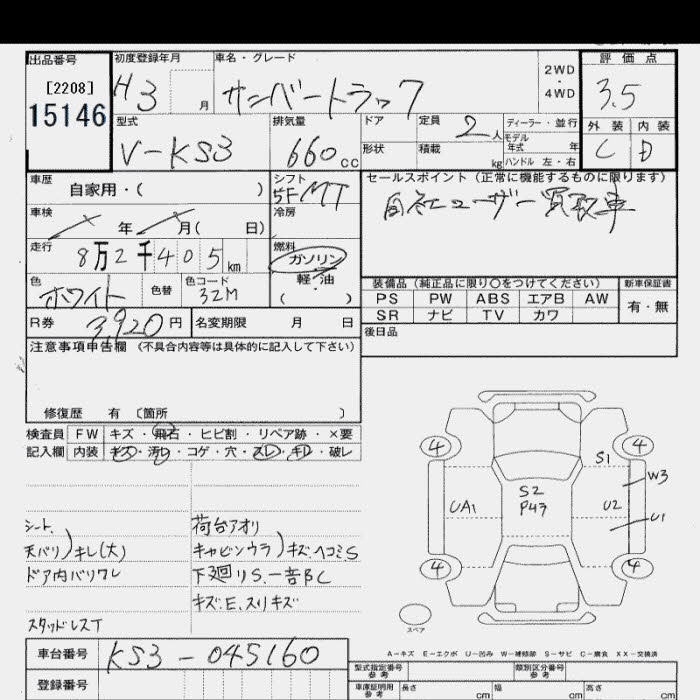 出品番号
[2208]
15146
初度登録年月
H3 月
車名・グレード
サンバートラック
2WD
・
4WD
評価点
3.5
外装 内装
C D
型式
V-KS3
排気量
660cc
ドア
形状
定員 2人
積載 kg
ディーラー・並行
モデル年式 年
ハンドル 左・右
車歴 自家用・( )
シフト
5F MT
セールスポイント(正常に機能するものに限ります)
自社ユーザー買取車
車検 年 月( 日)
冷房
走行 8万2千405km
燃料
ガソリン
軽・油
( )
色 ホワイト
色替
色コード 32M
装備品(純正品に限り〇をつけてください) 新車保証書
PS PW ABS エアB AW 有・無
SR ナビ TV カワ
R券 3,920円
名変期限 月 日
後日品
注意事項申告欄(不具合内容等は具体的に記入して下さい)
修復歴 有 〔箇所 〕
検査員記入欄
FW キズ・飛石・ヒビ割・リペア跡・×要
内装 キズ・汚レ・コゲ・穴・スレ・キレ・破レ
シート、
天バリ)キレ(大)
ドア内バリワレ
スタッドレスT
荷台アオリ
キャビンウラ)キズ.ヘコミS
下廻りS.一部BC
キズ.E.スリキズ
4 4
S1
W3
S2
P43
UA1
U2
U1
4 4
スペア
A-キズ E-エクボ U-凹み W-補修跡 S-サビ C-腐食 XX-交換済
車台番号 KS3-045160
登録番号
型式指定番号
参考
類別区分番号
参考
車庫証明用
参考
長さ cm
幅 cm
高さ cm